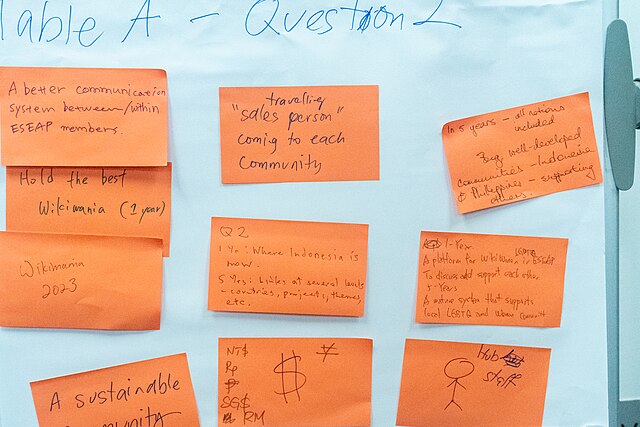 Table A - Question 2
A better communication
system between/within
ESEAP members.
Hold the best
Wikimania (1 year)
Wikimania
2023
A sustainable
travelling
"sales person"
coming to each
Community
Q2
1 Yr: Where Indonesia is
now.
5 Yrs: Links at several levels
- countries, projects, themes,
etc.
NT$
Rp
₱
SG$
RM
$
In 5 years - all nations
included
well-developed
communities - Indonesia
& Philippines - supporting
others.
1-Year
A platform for in ESEAP
To discuss and support each other
5-Years
A mature system that supports
local LGBTQ and
Hub
Staff